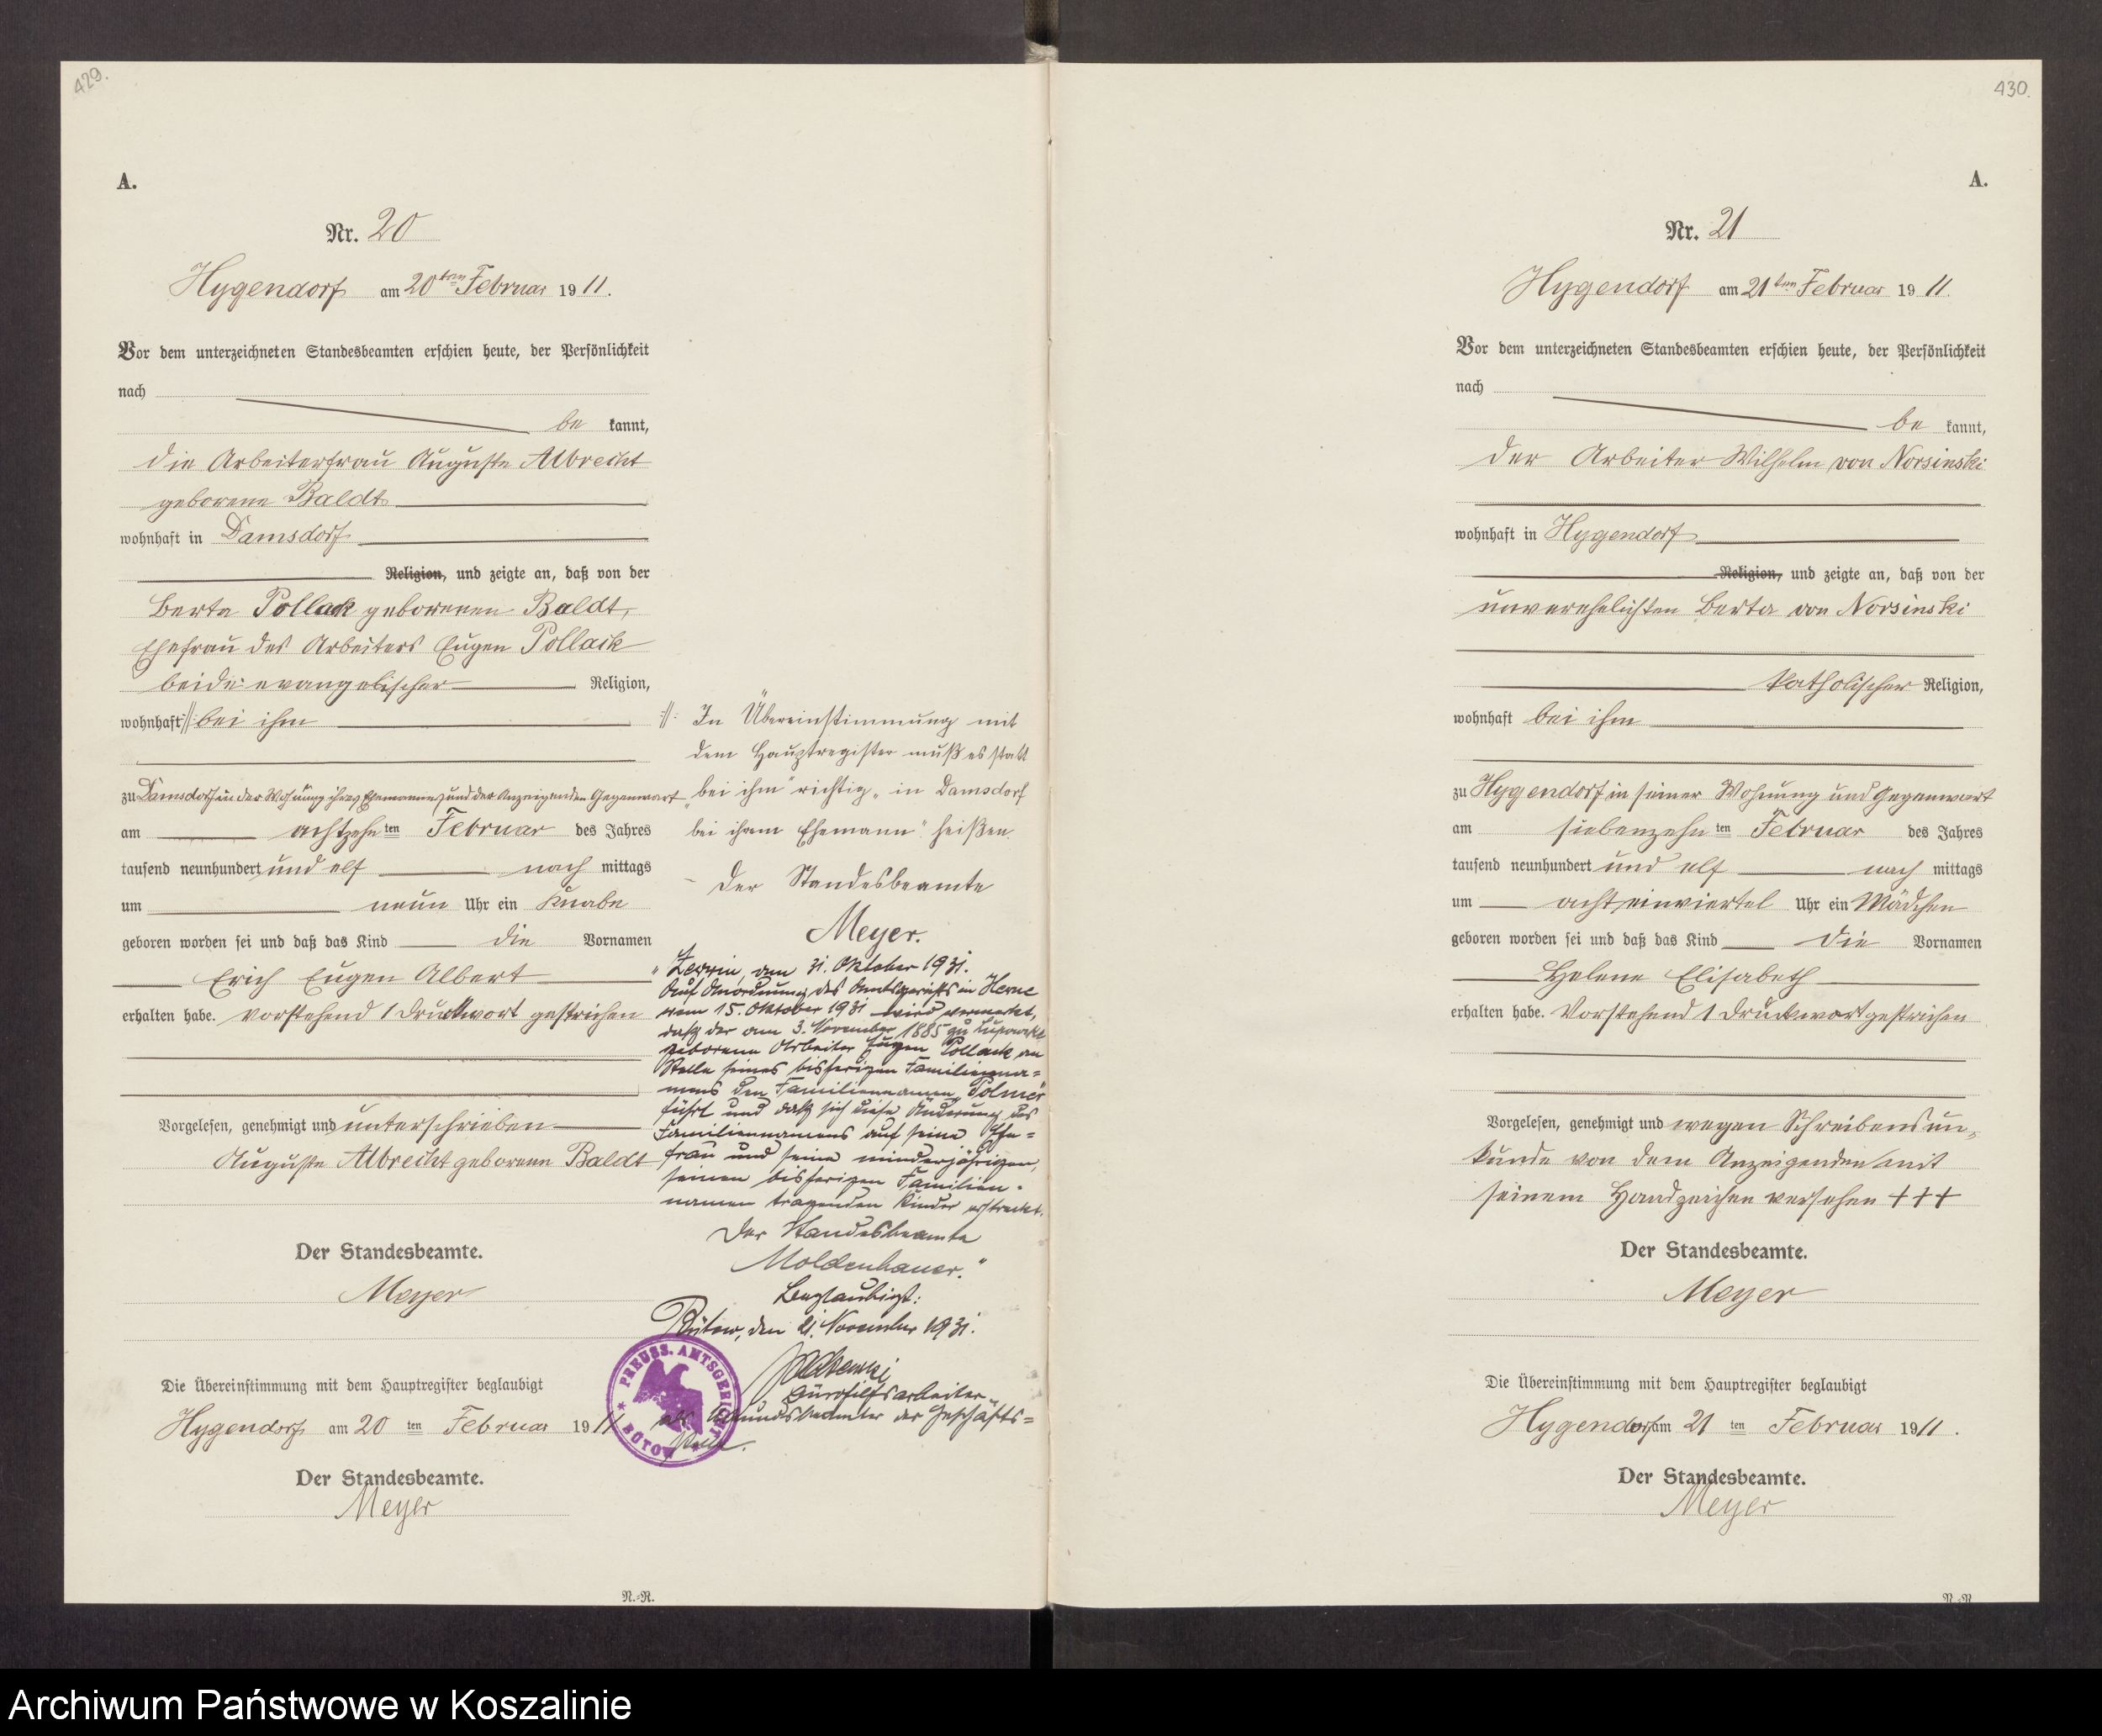 429.
A.
Nr. 20
Hygendorf am 20ten Februar 1911.
Vor dem unterzeichneten Standesbeamten erschien heute, der Persönlichkeit
nach
be kannt,
die Arbeiterfrau Auguste Albrecht
geborene Baldt
wohnhaft in Damsdorf
Religion, und zeigte an, daß von der
Berta Pollack geborenen Baldt,
Ehefrau des Arbeiters Eugen Pollack
beide evangelischer Religion,
wohnhaft ://: bei ihm
zu Damsdorf in der Wohnung ihres Ehemannes und der Anzeigenden Gegenwart
am achtzehn ten Februar des Jahres
tausend neunhundert und elf nach mittags
um neun Uhr ein Knabe
geboren worden sei und daß das Kind die Vornamen
Erich Eugen Albert
erhalten habe. Vorstehend 1 Druckwort gestrichen
Vorgelesen, genehmigt und unterschrieben
Auguste Albrecht geborene Baldt
Der Standesbeamte.
Meyer
Die Übereinstimmung mit dem Hauptregister beglaubigt
Hygendorf am 20 ten Februar 1911
Der Standesbeamte.
Meyer
N.-R.
://: In Übereinstimmung mit
dem Hauptregister muß es statt
"bei ihm" richtig "in Damsdorf
bei ihrem Ehemann" heißen.
Der Standesbeamte
Meyer.
"Zerrin, am 31. Oktober 1931.
Auf Anordnung des Amtsgerichts in Herne
vom 15. Oktober 1931 wird vermerkt,
daß der am 3. November 1885 zu
geborene Arbeiter Eugen Pollack an
Stelle seines bisherigen Familienna=
mens den Familiennamen "Polmer"
führt und daß sich diese Änderung des
Familiennamens auf seine Ehe=
frau und seine minderjährigen,
seinen bisherigen Familien-
namen tragenden Kinder erstreckt.
Der Standesbeamte
Moldenhauer."
Beglaubigt:
Bütow, den 21. November 1931.
Bürohilfsarbeiter
als Urkundsbeamter der Geschäfts=
stelle.
PREUSS. AMTSGERICHT
BÜTOW
430.
A.
Nr. 21
Hygendorf am 21ten Februar 1911.
Vor dem unterzeichneten Standesbeamten erschien heute, der Persönlichkeit
nach
be kannt,
der Arbeiter Wilhelm von Norsinski
wohnhaft in Hygendorf
Religion, und zeigte an, daß von der
unverehelichten Berta von Norsinski
katholischer Religion,
wohnhaft bei ihm
zu Hygendorf in seiner Wohnung und Gegenwart
am siebenzehn ten Februar des Jahres
tausend neunhundert und elf nach mittags
um acht einviertel Uhr ein Mädchen
geboren worden sei und daß das Kind die Vornamen
Helene Elisabeth
erhalten habe. Vorstehend 1 Druckwort gestrichen
Vorgelesen, genehmigt und wegen Schreibensun=
kunde von dem Anzeigenden mit
seinem Handzeichen versehen +++
Der Standesbeamte.
Meyer
Die Übereinstimmung mit dem Hauptregister beglaubigt
Hygendorf am 21 ten Februar 1911.
Der Standesbeamte.
Meyer
N.-R.
Archiwum Państwowe w Koszalinie